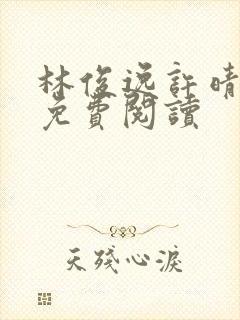 林俊逸許晴
免費閱讀
天殘心淚